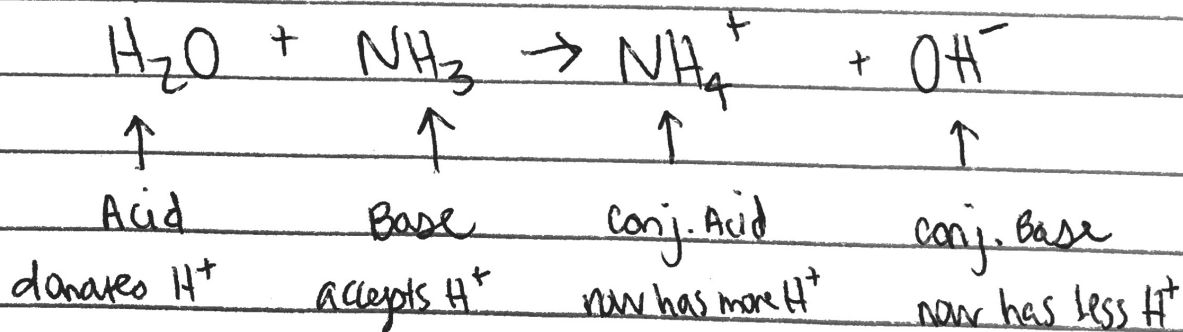 H₂O + NH₃ → NH₄⁺ + OH⁻
↑ ↑ ↑ ↑
Acid Base Conj. Acid conj. Base
donates H⁺ accepts H⁺ now has more H⁺ now has less H⁺